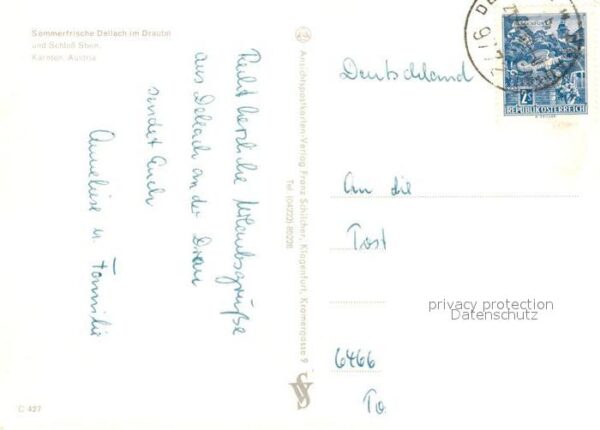 Sommerfrische Dellach im Drautal
und Schloß Stein,
Kärnten, Austria
Recht herzliche Urlaubsgrüße
aus Dellach an der Drau
sendet Euch
Anneliese u. Familie
Ansichtspostkarten-Verlag Franz Schilcher, Klagenfurt, Kramergasse 9
Tel. (04222) 85228
Deutschland
2S
REPUBLIK ÖSTERREICH
An die
Post
6466
To
privacy protection
Datenschutz
D 427